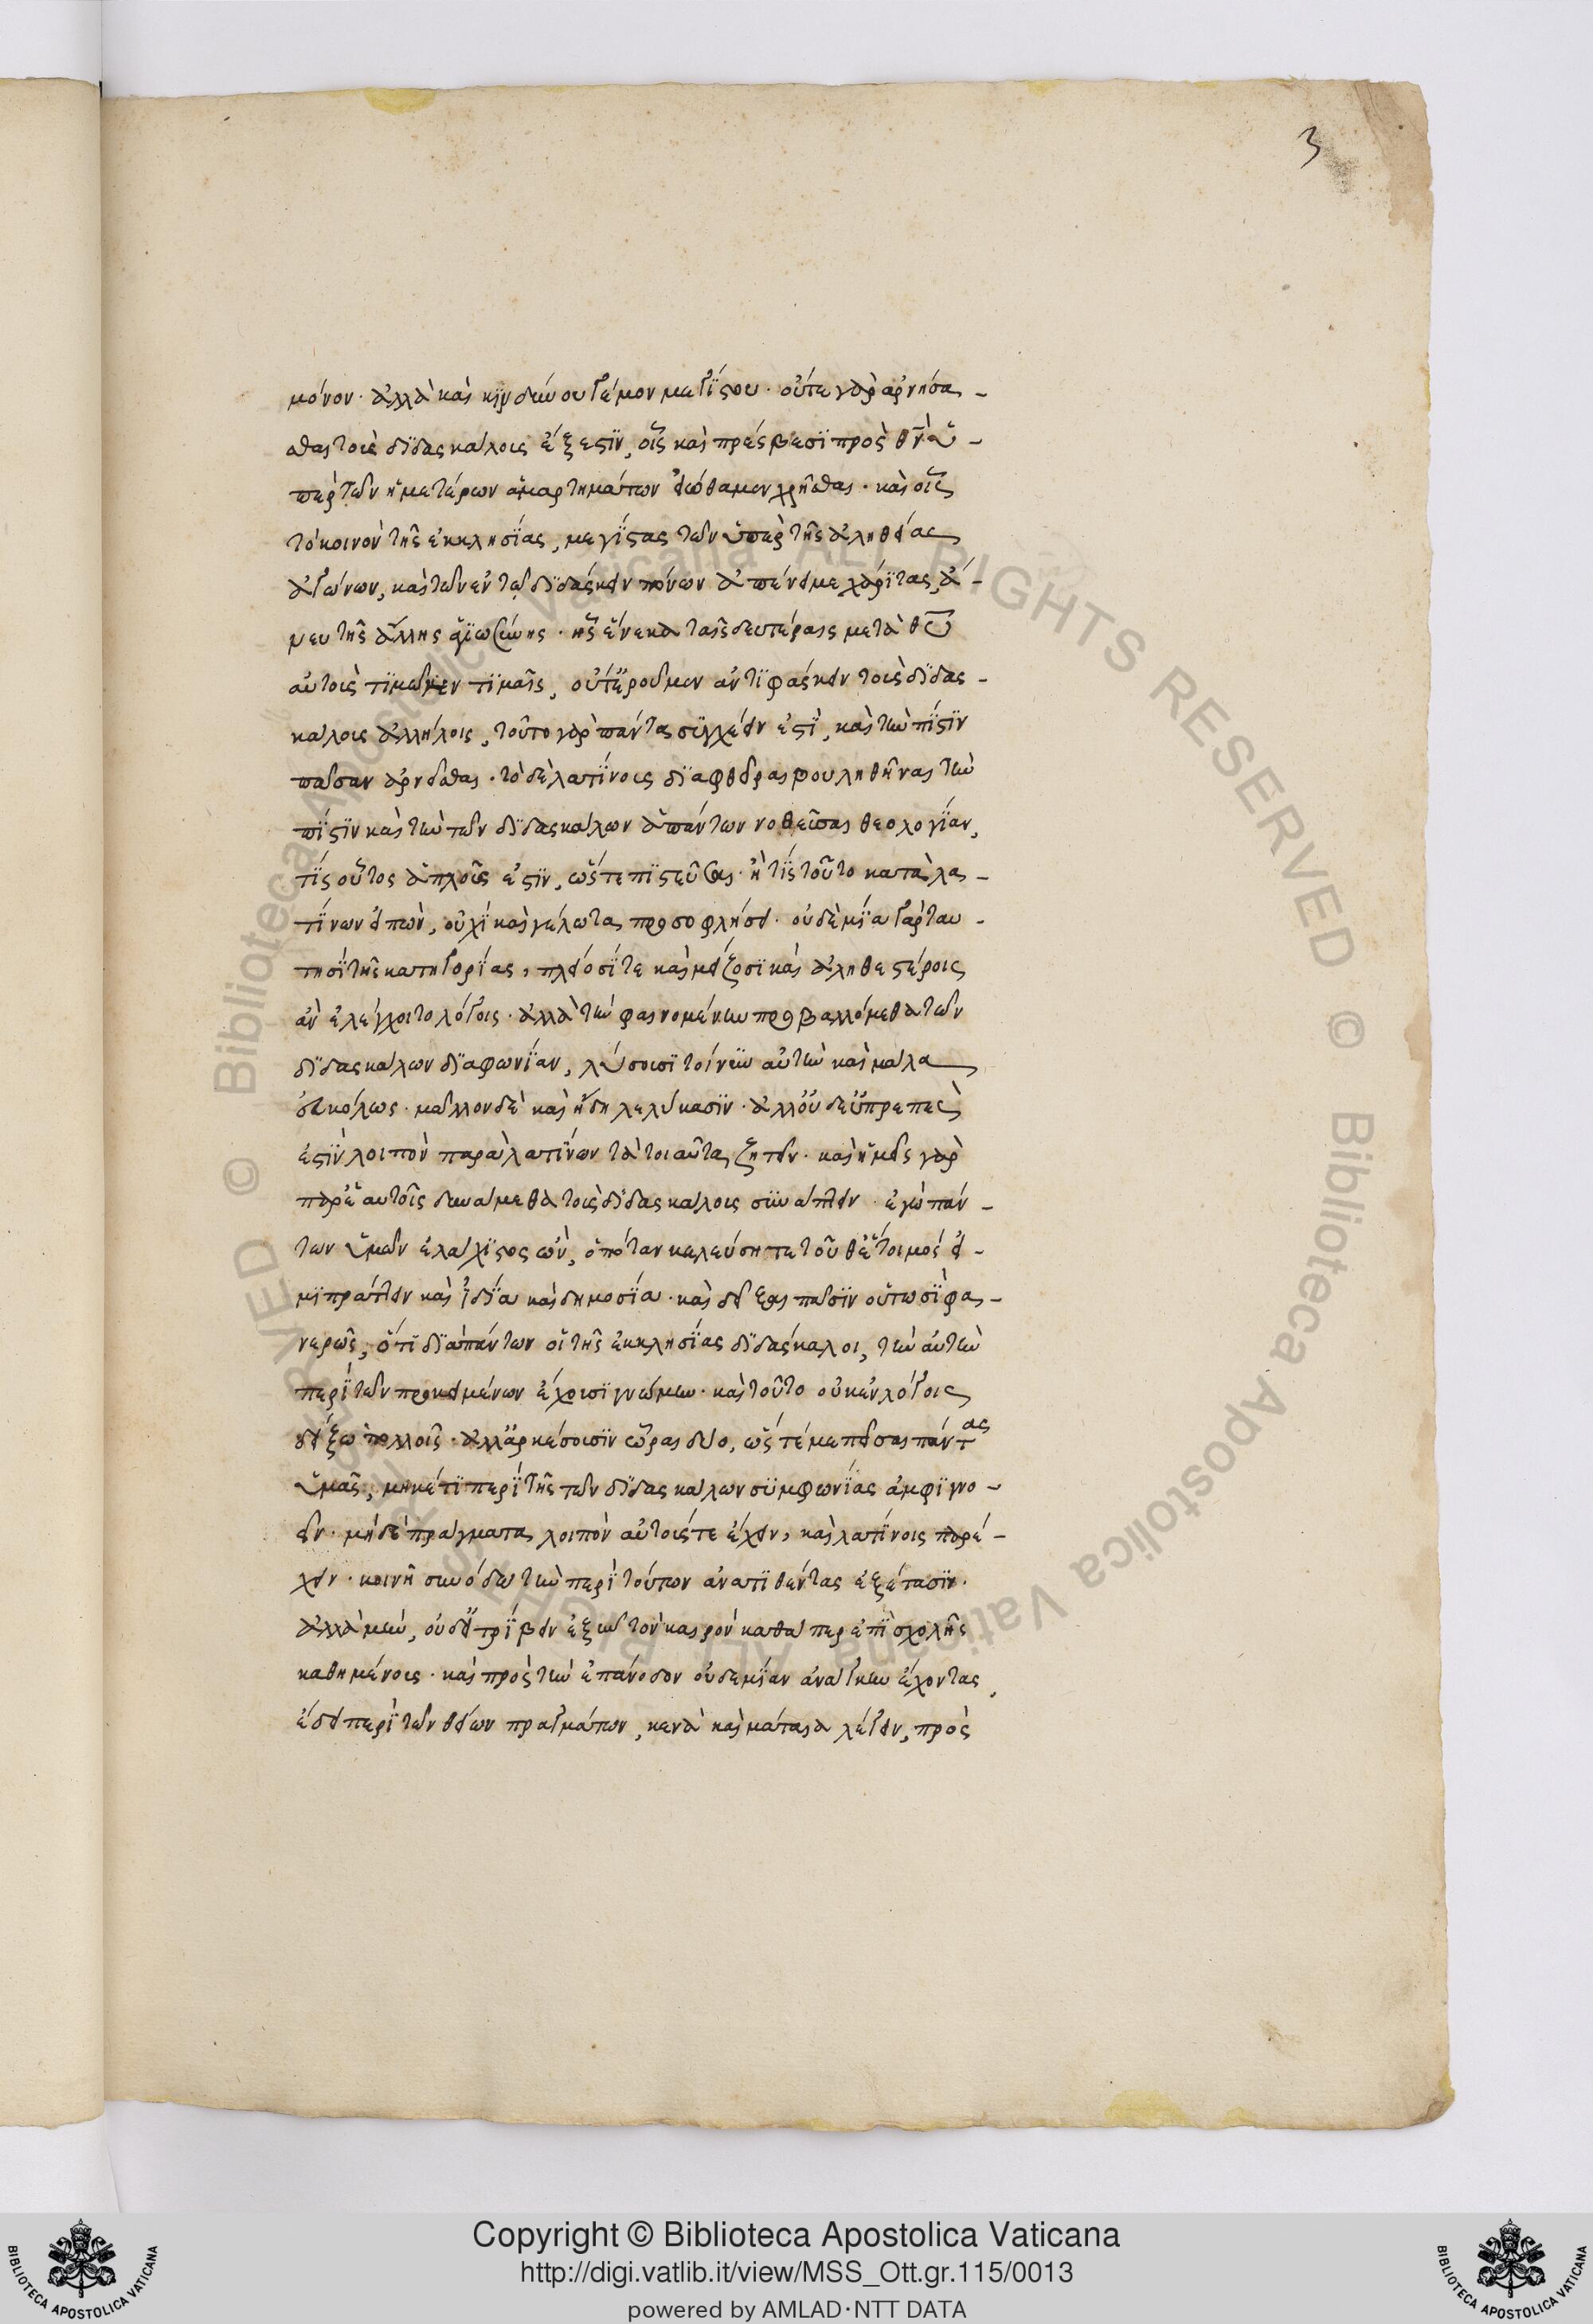 3
μόνον· ἀλλὰ καὶ κίνδύνου γέμον μεγίστου· οὔτε γὰρ ἀρνήσα-
σθαι τοὺς διδασκάλους ἔξεστιν, οἷς καὶ πρέσβεσι πρὸς θν ὑ-
πὲρ τῶν ἡμετέρων ἁμαρτημάτων εἰώθαμεν χρῆσθαι· καὶ οἷς
τὸ κοινὸν τῆς ἐκκλησίας, μεγίστας τῶν ὑπὲρ τῆς ἀληθείας
ἀγώνων, καὶ τῶν ἐν τῷ διδάσκειν πόνων ἀπένειμε χάριτας, ἄ-
νευ τῆς ἄλλης ἁγιωσύνης· ἧς ἕνεκα ταῖς δευτέραις μετὰ θυ
αὐτοὺς τιμῶμεν τιμαῖς, οὔτ' ἐροῦμεν ἀντιφάσκειν τοὺς διδασ-
κάλους ἀλλήλοις, τοῦτο γὰρ πάντα συγχεῖν ἐστὶ, καὶ τὴν πίστιν
πᾶσαν ἀρνεῖσθαι· τὸ δὲ λατίνους διαφθεῖραι βουληθῆναι τὴν
πίστιν καὶ τὴν τῶν διδασκάλων ἁπάντων νοθεῦσαι θεολογίαν,
τίς οὕτως ἁπλοῦς ἐστιν, ὥστε πιστεῦσαι· ἢ τίς τοῦτο κατὰ λα-
τίνων εἰπὼν, οὐχὶ καὶ γέλωτα προσοφλήσει· οὐδεμία γὰρ ταυ-
τησὶ τῆς κατηγορίας, πλείοσί τε καὶ μείζοσι καὶ ἀληθεστέροις
ἂν ἐλέγχοιτο λόγοις· ἀλλὰ τὴν φαινομένην προβαλλόμεθα τῶν
διδασκάλων διαφωνίαν, λύσουσι τοίνυν αὐτὴν καὶ μάλα
εὐκόλως· μᾶλλον δὲ καὶ ἤδη λελύκασιν· ἀλλ' οὐδ' εὐπρεπὲς
ἐστὶν λοιπὸν παρὰ λατίνων τὰ τοιαῦτα ζητεῖν· καὶ ἡμεῖς γὰρ
παρ' ἑαυτοῖς δυνάμεθα τοὺς διδασκάλους συνάπτειν· ἐγὼ πάν-
των ὑμῶν ἐλάχιστος ὢν, ὁπόταν κελεύσητε τοῦθ' ἕτοιμός εἰ-
μι πράττειν καὶ ἰδίᾳ καὶ δημοσίᾳ· καὶ δεῖξαι πᾶσιν οὑτωσὶ φα-
νερῶς, ὅτι διαπάντων οἱ τῆς ἐκκλησίας διδάσκαλοι, τὴν αὐτὴν
περὶ τῶν προκειμένων ἔχουσι γνώμην· καὶ τοῦτο οὐκ ἐν λόγοις
δείξω πολλοῖς· ἀλλ' ἀρκέσουσιν ὧραι δύο, ὥστέ με πεῖσαι πάντας
ὑμᾶς, μηκέτι περὶ τῆς τῶν διδασκάλων συμφωνίας ἀμφιγνο-
εῖν· μήδε πράγματα λοιπὸν αὐτούς τε ἔχειν, καὶ λατίνοις παρέ-
χειν· κοινῇ συνόδῳ τὴν περὶ τούτων ἀνατιθέντας ἐξέτασιν·
ἀλλὰ μὴν, οὐδὲ τρίβειν ἐξῆν τὸν καιρὸν καθάπερ ἐπὶ σχολῆς
καθημένους· καὶ πρὸς τὴν ἐπάνοδον οὐδεμίαν ἀνάγκην ἔχοντας,
ἔδει περὶ τῶν θείων πραγμάτων, κενὰ καὶ μάταια λέγειν, πρὸς
Copyright © Biblioteca Apostolica Vaticana
http://digi.vatlib.it/view/MSS_Ott.gr.115/0013
powered by AMLAD·NTT DATA